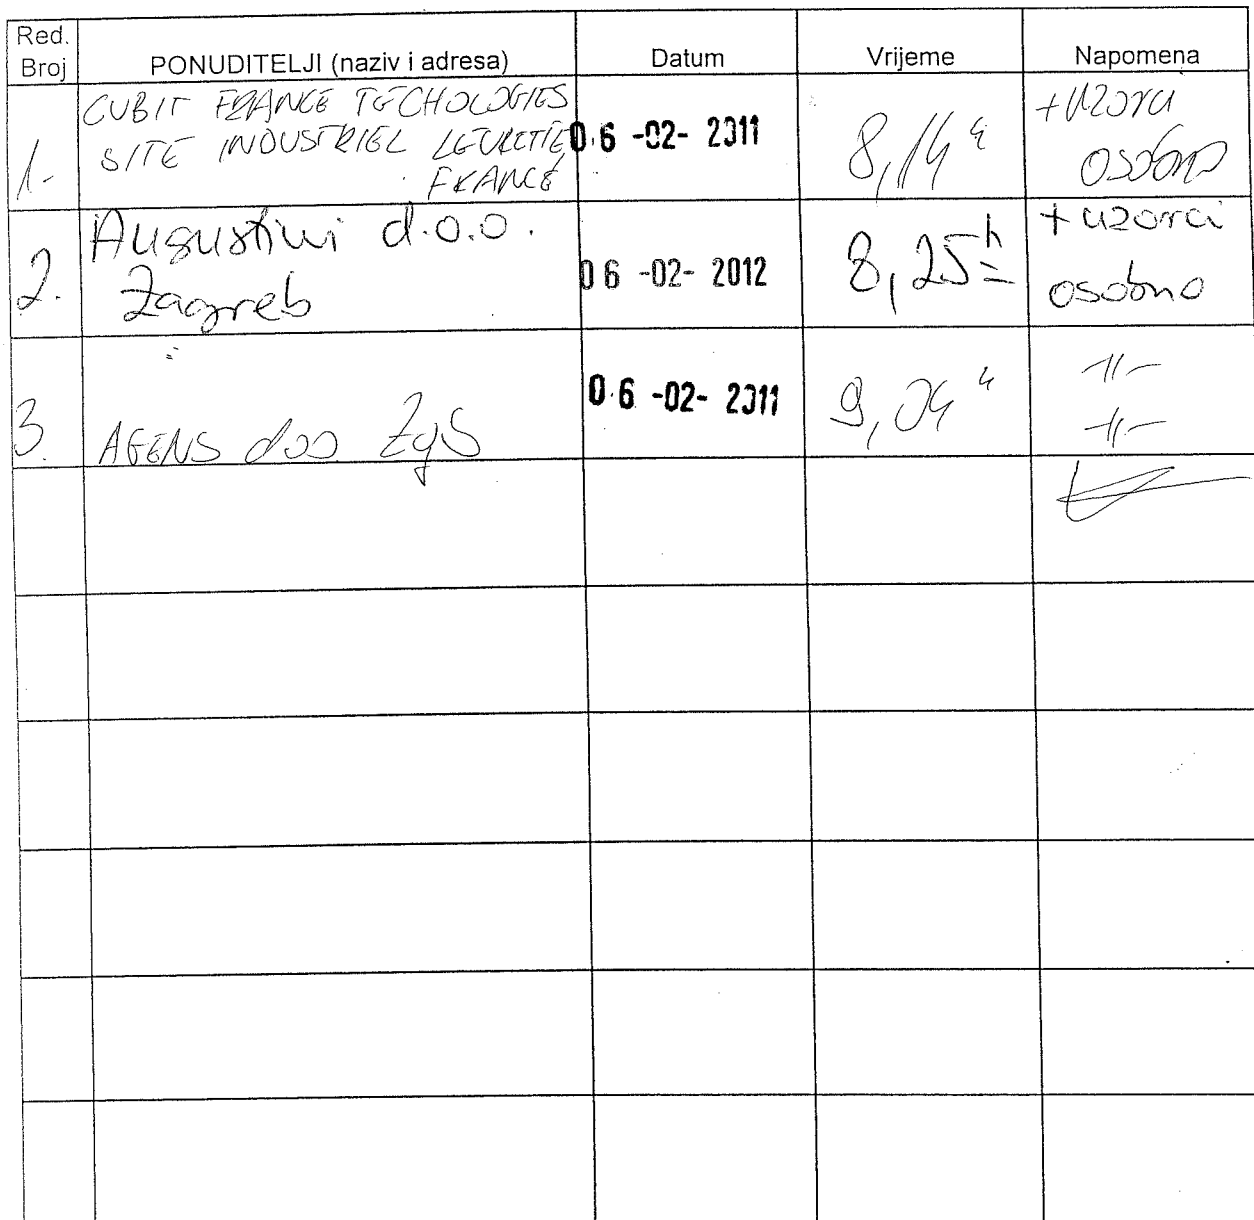 Red. Broj PONUDITELJI (naziv i adresa) Datum Vrijeme Napomena
1. CUBIT FRANCE TECHOLOGIES
SITE INDUSTRIEL
FRANCE
06 -02- 2011 8,14 h + uzorci
osobno
2. Augustini d.o.o.
Zagreb
06 -02- 2012 8,25 h + uzorci
osobno
3. AGENS doo Zgb
06 -02- 2011 9,04 h -11-
-11-